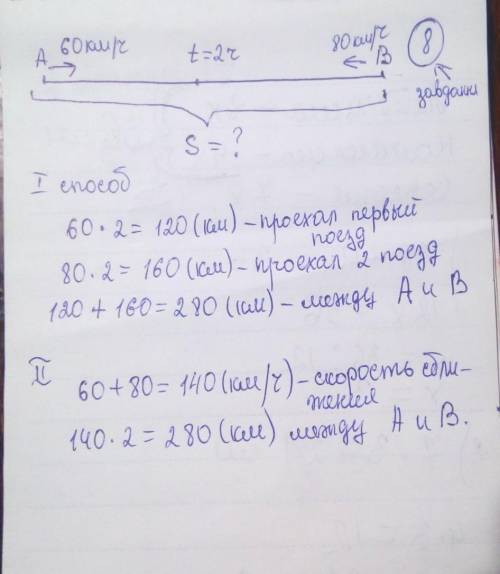 A 60км/ч t=2ч 80км/ч B 8
завдання
S = ?
I способ
60 · 2 = 120 (км) – проехал первый
поезд
80 · 2 = 160 (км) – проехал 2 поезд
120 + 160 = 280 (км) – между A и B
II
60 + 80 = 140 (км/ч) – скорость сбли-
жения
140 · 2 = 280 (км) между A и B.